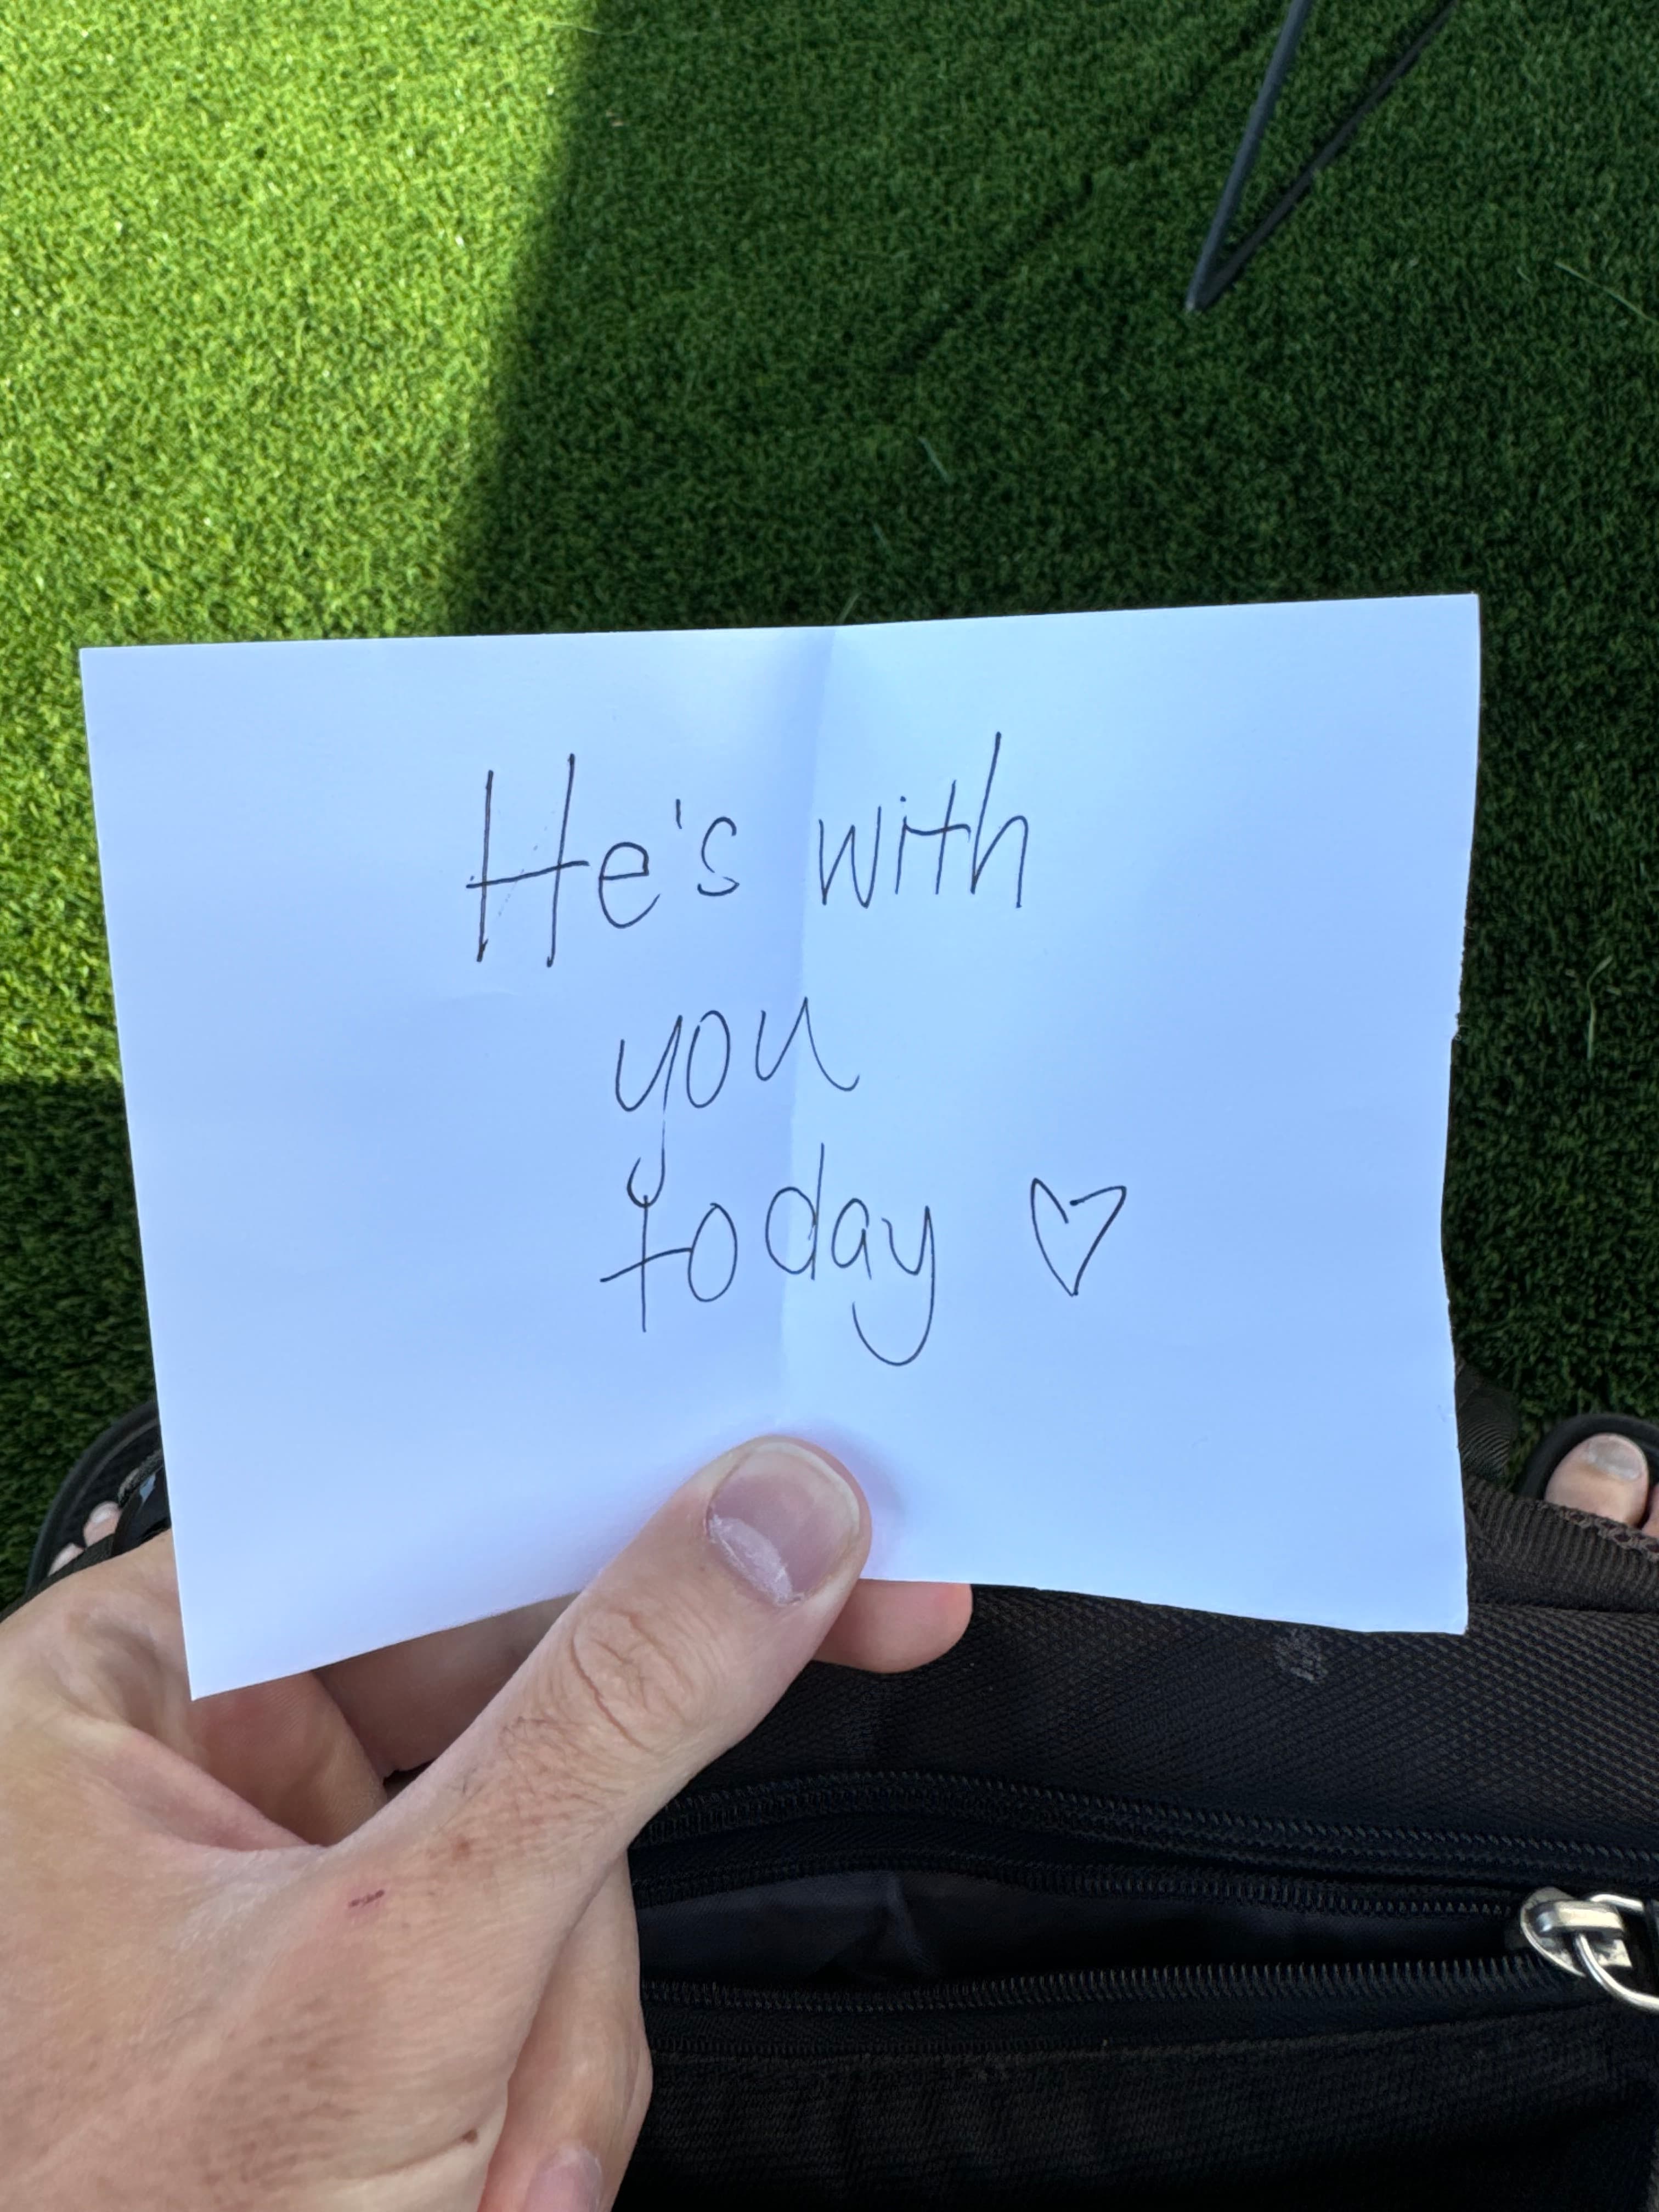 He's with
you
today ♡